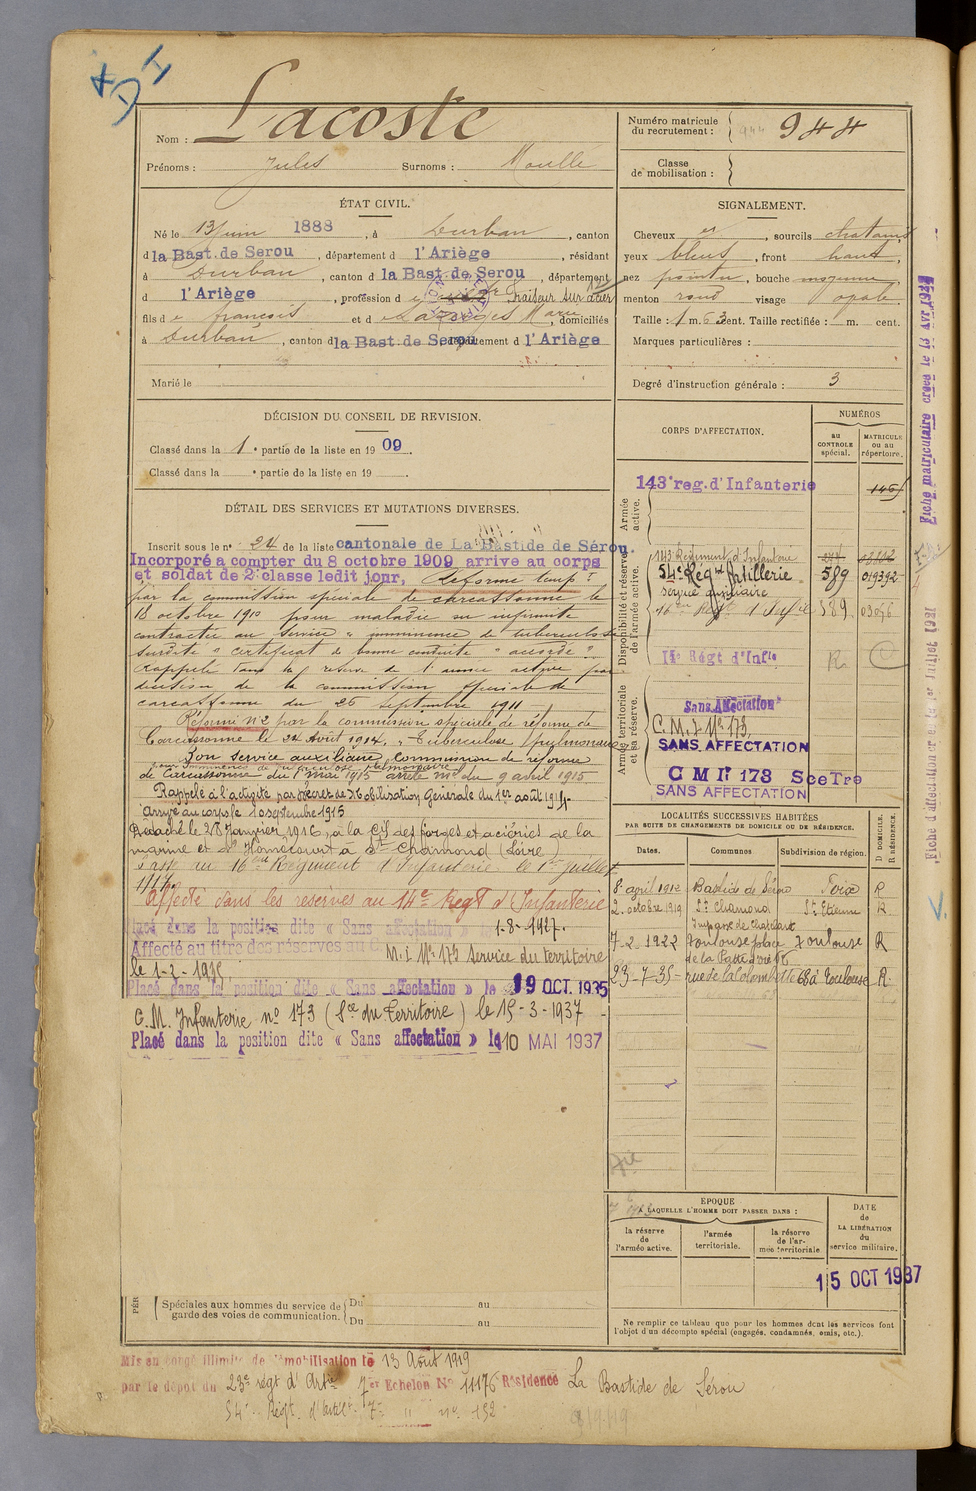 Lacoste
Nom :
Prénoms : Jules Surnoms : Moulle
Numéro matricule du recrutement : 944 944
Classe de mobilisation :
ÉTAT CIVIL.
Né le 13 juin 1888, à Durban, canton
d la Bast. de Serou, département d l'Ariège, résidant
à Durban, canton d la Bast. de Serou, département
d l'Ariège, profession d Fraiseur sur acier
fils de françois et d Marie, domiciliés
à Durban, canton d la Bast. de Serou département d l'Ariège
Marié le
SIGNALEMENT.
Cheveux et, sourcils chatains
yeux bleus, front haut,
nez pointu, bouche moyenne
menton rond visage opale
Taille : 1 m. 63 cent. Taille rectifiée : m. cent.
Marques particulières :
Degré d'instruction générale : 3
DÉCISION DU CONSEIL DE REVISION.
Classé dans la 1e partie de la liste en 1909
Classé dans la e partie de la liste en 19
DÉTAIL DES SERVICES ET MUTATIONS DIVERSES.
Inscrit sous le n° 24 de la liste cantonale de La Bastide de Sérou.
Incorporé a compter du 8 octobre 1909 arrive au corps
et soldat de 2e classe ledit jour, Réformé temp.t
par la commission spéciale de carcassonne le
18 octobre 1910 pour maladie ou infirmité
contractée au service « imminence de tuberculose
surdité » certificat de bonne conduite « accordé ».
Rappelé dans la réserve de l'armée active par
décision de la commission spéciale de
carcassonne du 25 septembre 1911
Réformé n°2 par la commission spéciale de réforme de
Carcassonne le 24 Août 1914, « Tuberculose pulmonaire
Bon service auxiliaire commission de réforme
pour imminence de tuberculose pulmonaire
de Carcassonne du 1er mai 1915 arrêté mel du 9 avril 1915
Rappelé à l'activité par Décret de Mobilisation Générale du 1er août 1914.
Arrivé au corps le 10 septembre 1915
Détaché le 28 Janvier 1916, à la Cie des forges et aciéries de la
marine et d'Homécourt à St Chamond (Loire)
Passé au 16me Régiment d'Infanterie le 1er Juillet
1917.
Affecté dans les réserves au 14e Regt d'Infanterie
Placé dans la position dite « Sans affectation » le 1-8-1927.
Affecté au titre des réserves au C.
M. I N° 173 Service du territoire
le 1-2-193
Placé dans la position dite « Sans affectation » le 19 OCT. 1935
C.M. Infanterie n° 173 (Sce du Territoire) le 15-3-1937
Placé dans la position dite « Sans affectation » le 10 MAI 1937
CORPS D'AFFECTATION.
NUMÉROS
au CONTROLE spécial.
MATRICULE ou au répertoire.
Armée active.
143e reg. d'Infanterie
Disponibilité et réserve de l'armée active.
143 Régiment d'Infanterie
54e Régnt Artillerie 589 019392
Service auxiliaire
16me Regt d'Infie 389 03056
14e Régt d'Infie
Armée territoriale et sa réserve.
Sans Affectation
C.M.I N° 173,
SANS AFFECTATION
C M I 173 Sce Tre
SANS AFFECTATION
LOCALITÉS SUCCESSIVES HABITÉES
PAR SUITE DE CHANGEMENTS DE DOMICILE OU DE RÉSIDENCE.
Dates. Communes Subdivision de région. D DOMICILE. R RÉSIDENCE.
8 avril 1912 Bastide de Sérou Foix R
2 octobre 1919 St Chamond St Etienne R
Impasse de
7-2-1922 Toulouse place Toulouse R
23-7-35- rue de la Colombette 68 à Toulouse R
ÉPOQUE
A LAQUELLE L'HOMME DOIT PASSER DANS :
la réserve de l'armée active.
l'armée territoriale.
la réserve de l'armée territoriale
DATE de LA LIBÉRATION du service militaire.
15 OCT 1937
Ne remplir ce tableau que pour les hommes dont les services font
l'objet d'un décompte spécial (engagés, condamnés, omis, etc.).
Spéciales aux hommes du service de garde des voies de communication.
Du au
Du au
Mis en congé illimité de démobilisation le 13 Août 1919
par le dépôt du 23e régt d'Artie 7er Echelon N° 11176 Résidence La Bastide de Sérou
54e Régt. d'Artilt 7e " n° 152
Fiche matriculaire créée le 13 AVR 1934
Fiche d'affectation créée le 1er juillet 1931